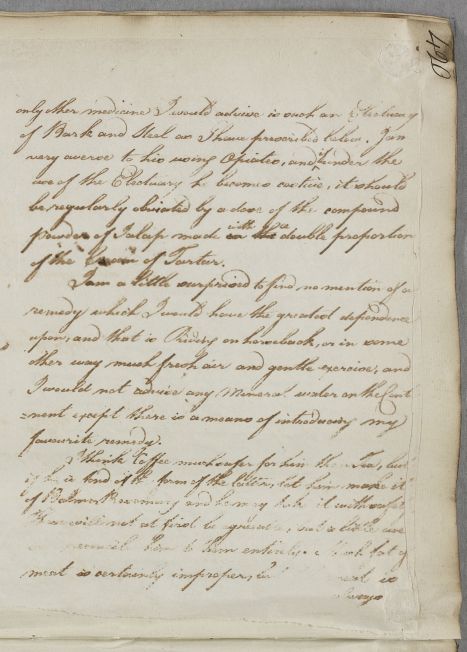 490
only other medicine I would advise is such an Electuary
of Bark and Steel as I have prescribed below. I am
very averse to his using Opiates, and if under the
use of the Electuary he becomes costive, it should
be regularly obviated by a dose of the compound
powder of Jalap made with a double proportion
of the Cream of Tartar.
I am a little surprised to find no mention of a
remedy which I would have the greatest dependence
upon, and that is Riding on horseback, or in some
other way much fresh air and gentle exercise, and
I would not advise any Mineral water on the Conti
=nent except there is a means of introducing my
favourite remedy.
I think Coffee much safer for him than Tea, but
if he is fond of the form of the latter, let him make it
of Balm or Rosemary and he may take it with safety
will not at first be agreeable, but a little use
him to them entirely. fat
meat is certainly improper, meat is
always